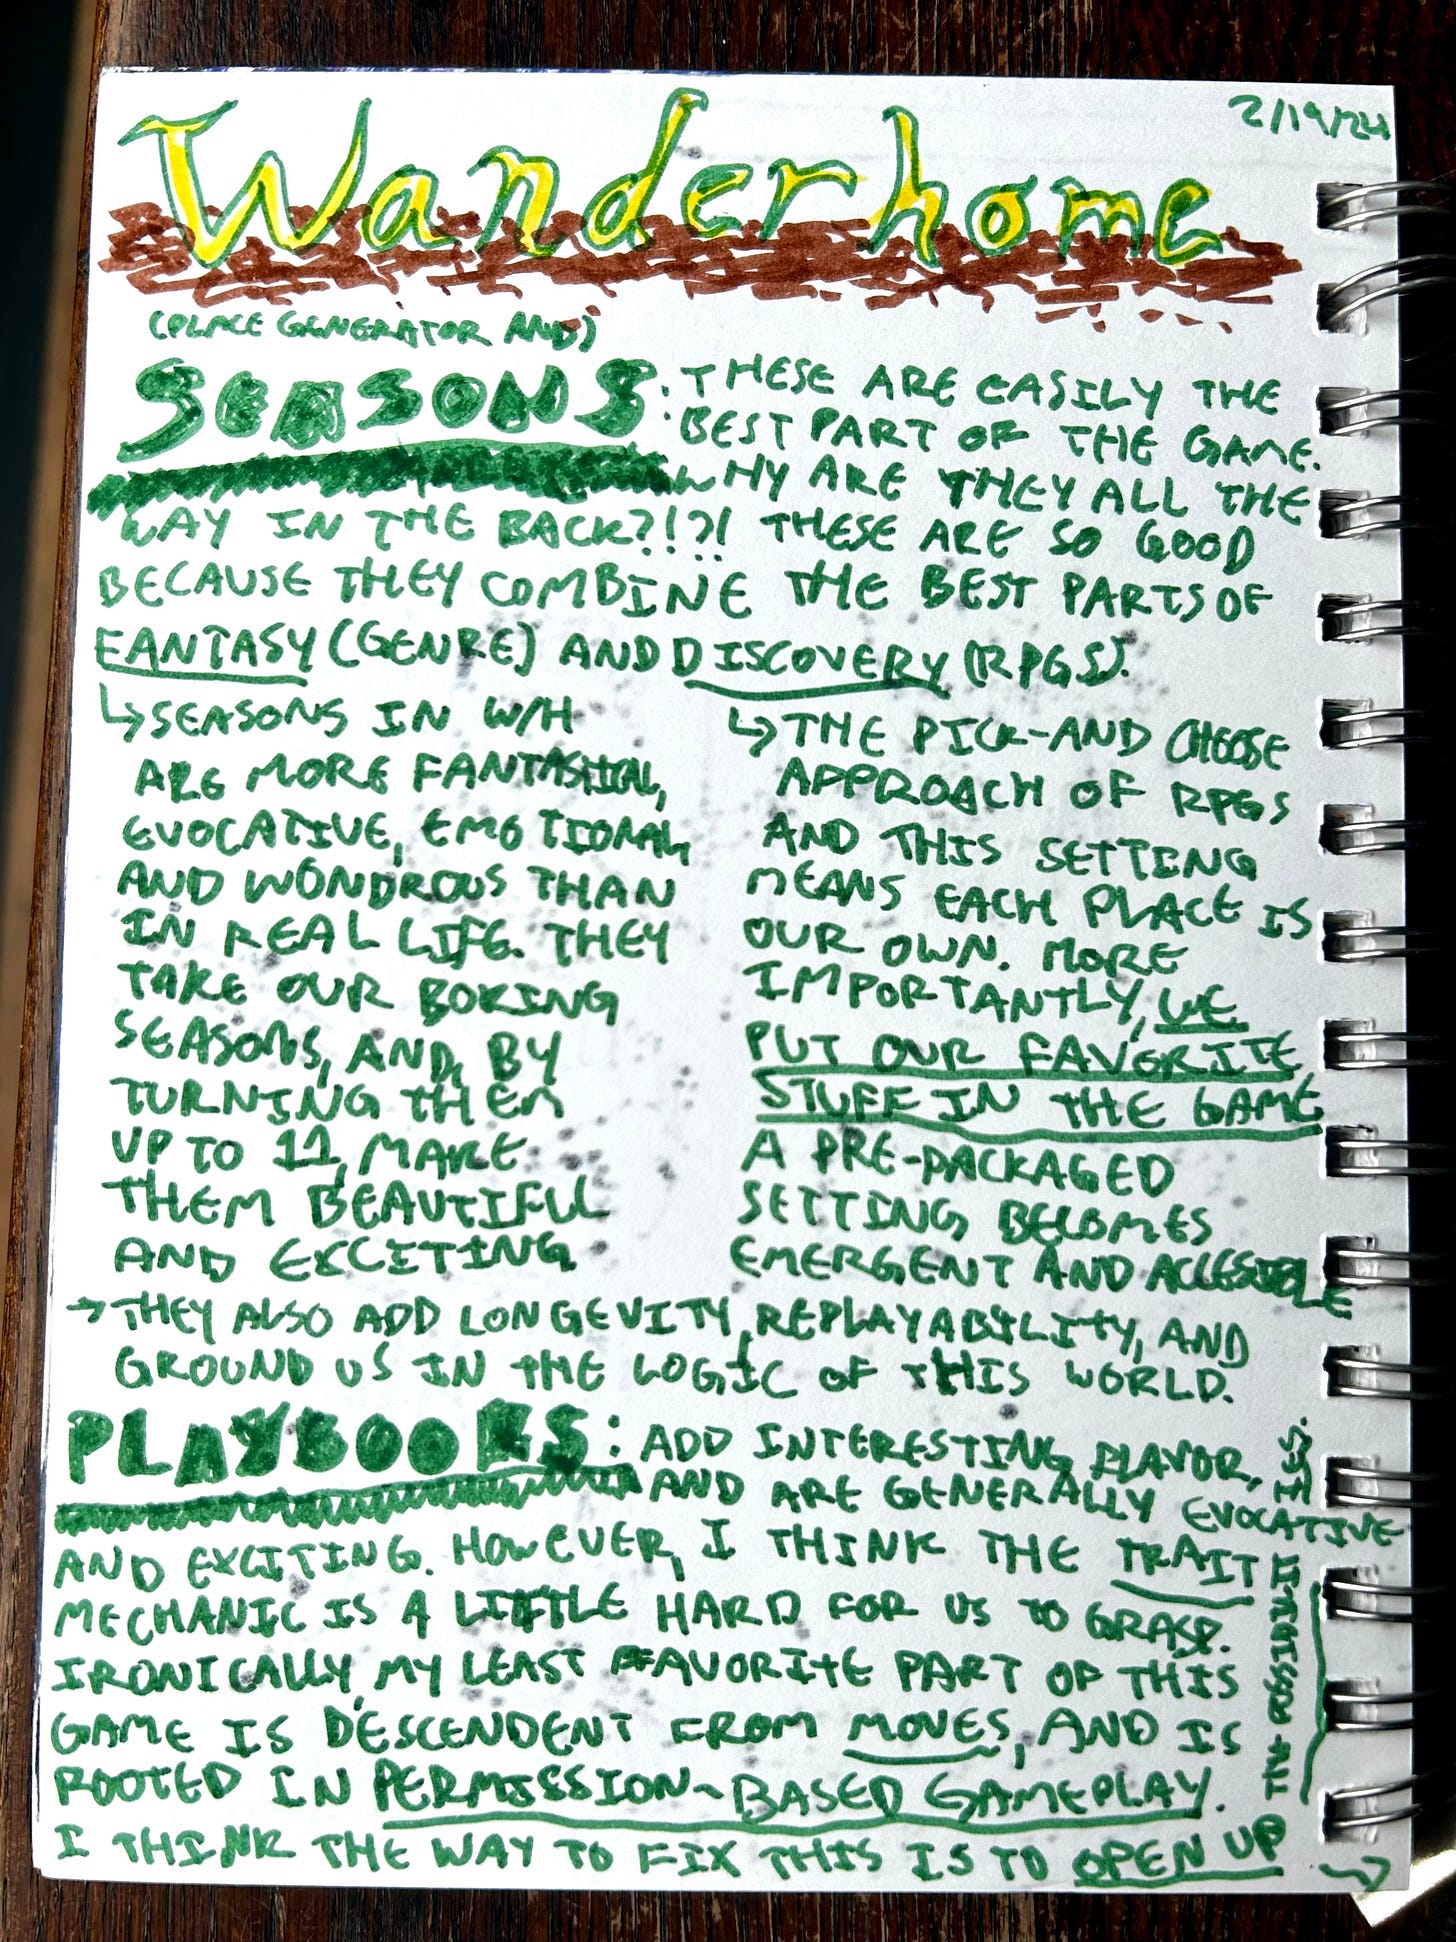 2/19/24
Wanderhome
(PLACE GENERATOR AND)
SEASONS: THESE ARE EASILY THE
BEST PART OF THE GAME.
WHY ARE THEY ALL THE
WAY IN THE BACK?!?! THESE ARE SO GOOD
BECAUSE THEY COMBINE THE BEST PARTS OF
FANTASY (GENRE) AND DISCOVERY (RPGS).
↳SEASONS IN W/H
ARE MORE FANTASTICAL,
EVOCATIVE, EMOTIONAL
AND WONDROUS THAN
IN REAL LIFE. THEY
TAKE OUR BORING
SEASONS, AND, BY
TURNING THEM
UP TO 11, MAKE
THEM BEAUTIFUL
AND EXCITING
↳THE PICK-AND CHOOSE
APPROACH OF RPGS
AND THIS SETTING
MEANS EACH PLACE IS
OUR OWN. MORE
IMPORTANTLY, WE
PUT OUR FAVORITE
STUFF IN THE GAME
A PRE-PACKAGED
SETTING BECOMES
EMERGENT AND ACCESSIBLE
→THEY ALSO ADD LONGEVITY, REPLAYABILITY, AND
GROUND US IN THE LOGIC OF THIS WORLD.
PLAYBOOKS: ADD INTERESTING FLAVOR,
AND ARE GENERALLY EVOCATIVE
AND EXCITING. HOWEVER, I THINK THE TRAIT
MECHANIC IS A LITTLE HARD FOR US TO GRASP.
IRONICALLY, MY LEAST FAVORITE PART OF THIS
GAME IS DESCENDENT FROM MOVES, AND IS
ROOTED IN PERMISSION-BASED GAMEPLAY.
I THINK THE WAY TO FIX THIS IS TO OPEN UP
THE POSSIBILITIES.